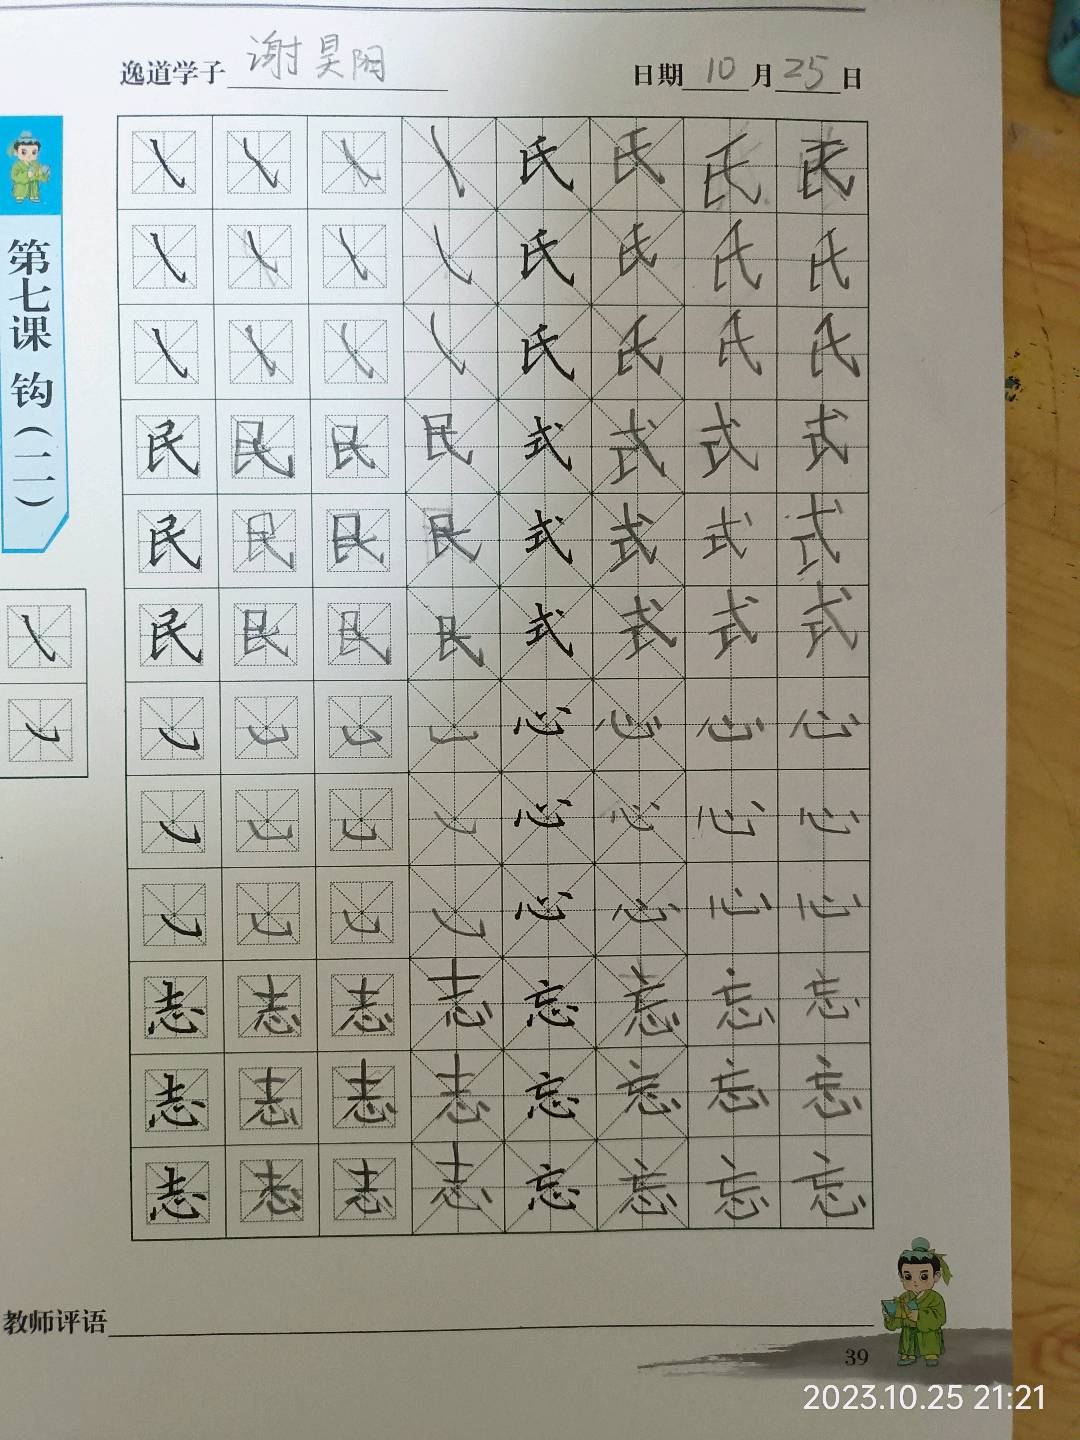 逸道学子 谢昊阳 日期 10 月 25 日
第七课 钩（二）
氏 氏 氏 民
氏 氏 氏 氏
氏 氏 氏 氏
民 民 民 民 式 式 式 式
民 民 民 民 式 式 式 式
民 民 民 民 式 式 式 式
心 心 心 心
心 心 心 心
心 心 心 心
志 志 志 志 忘 忘 忘 忘
志 志 志 志 忘 忘 忘 忘
志 志 志 志 忘 忘 忘 忘
教师评语
39
2023.10.25 21:21